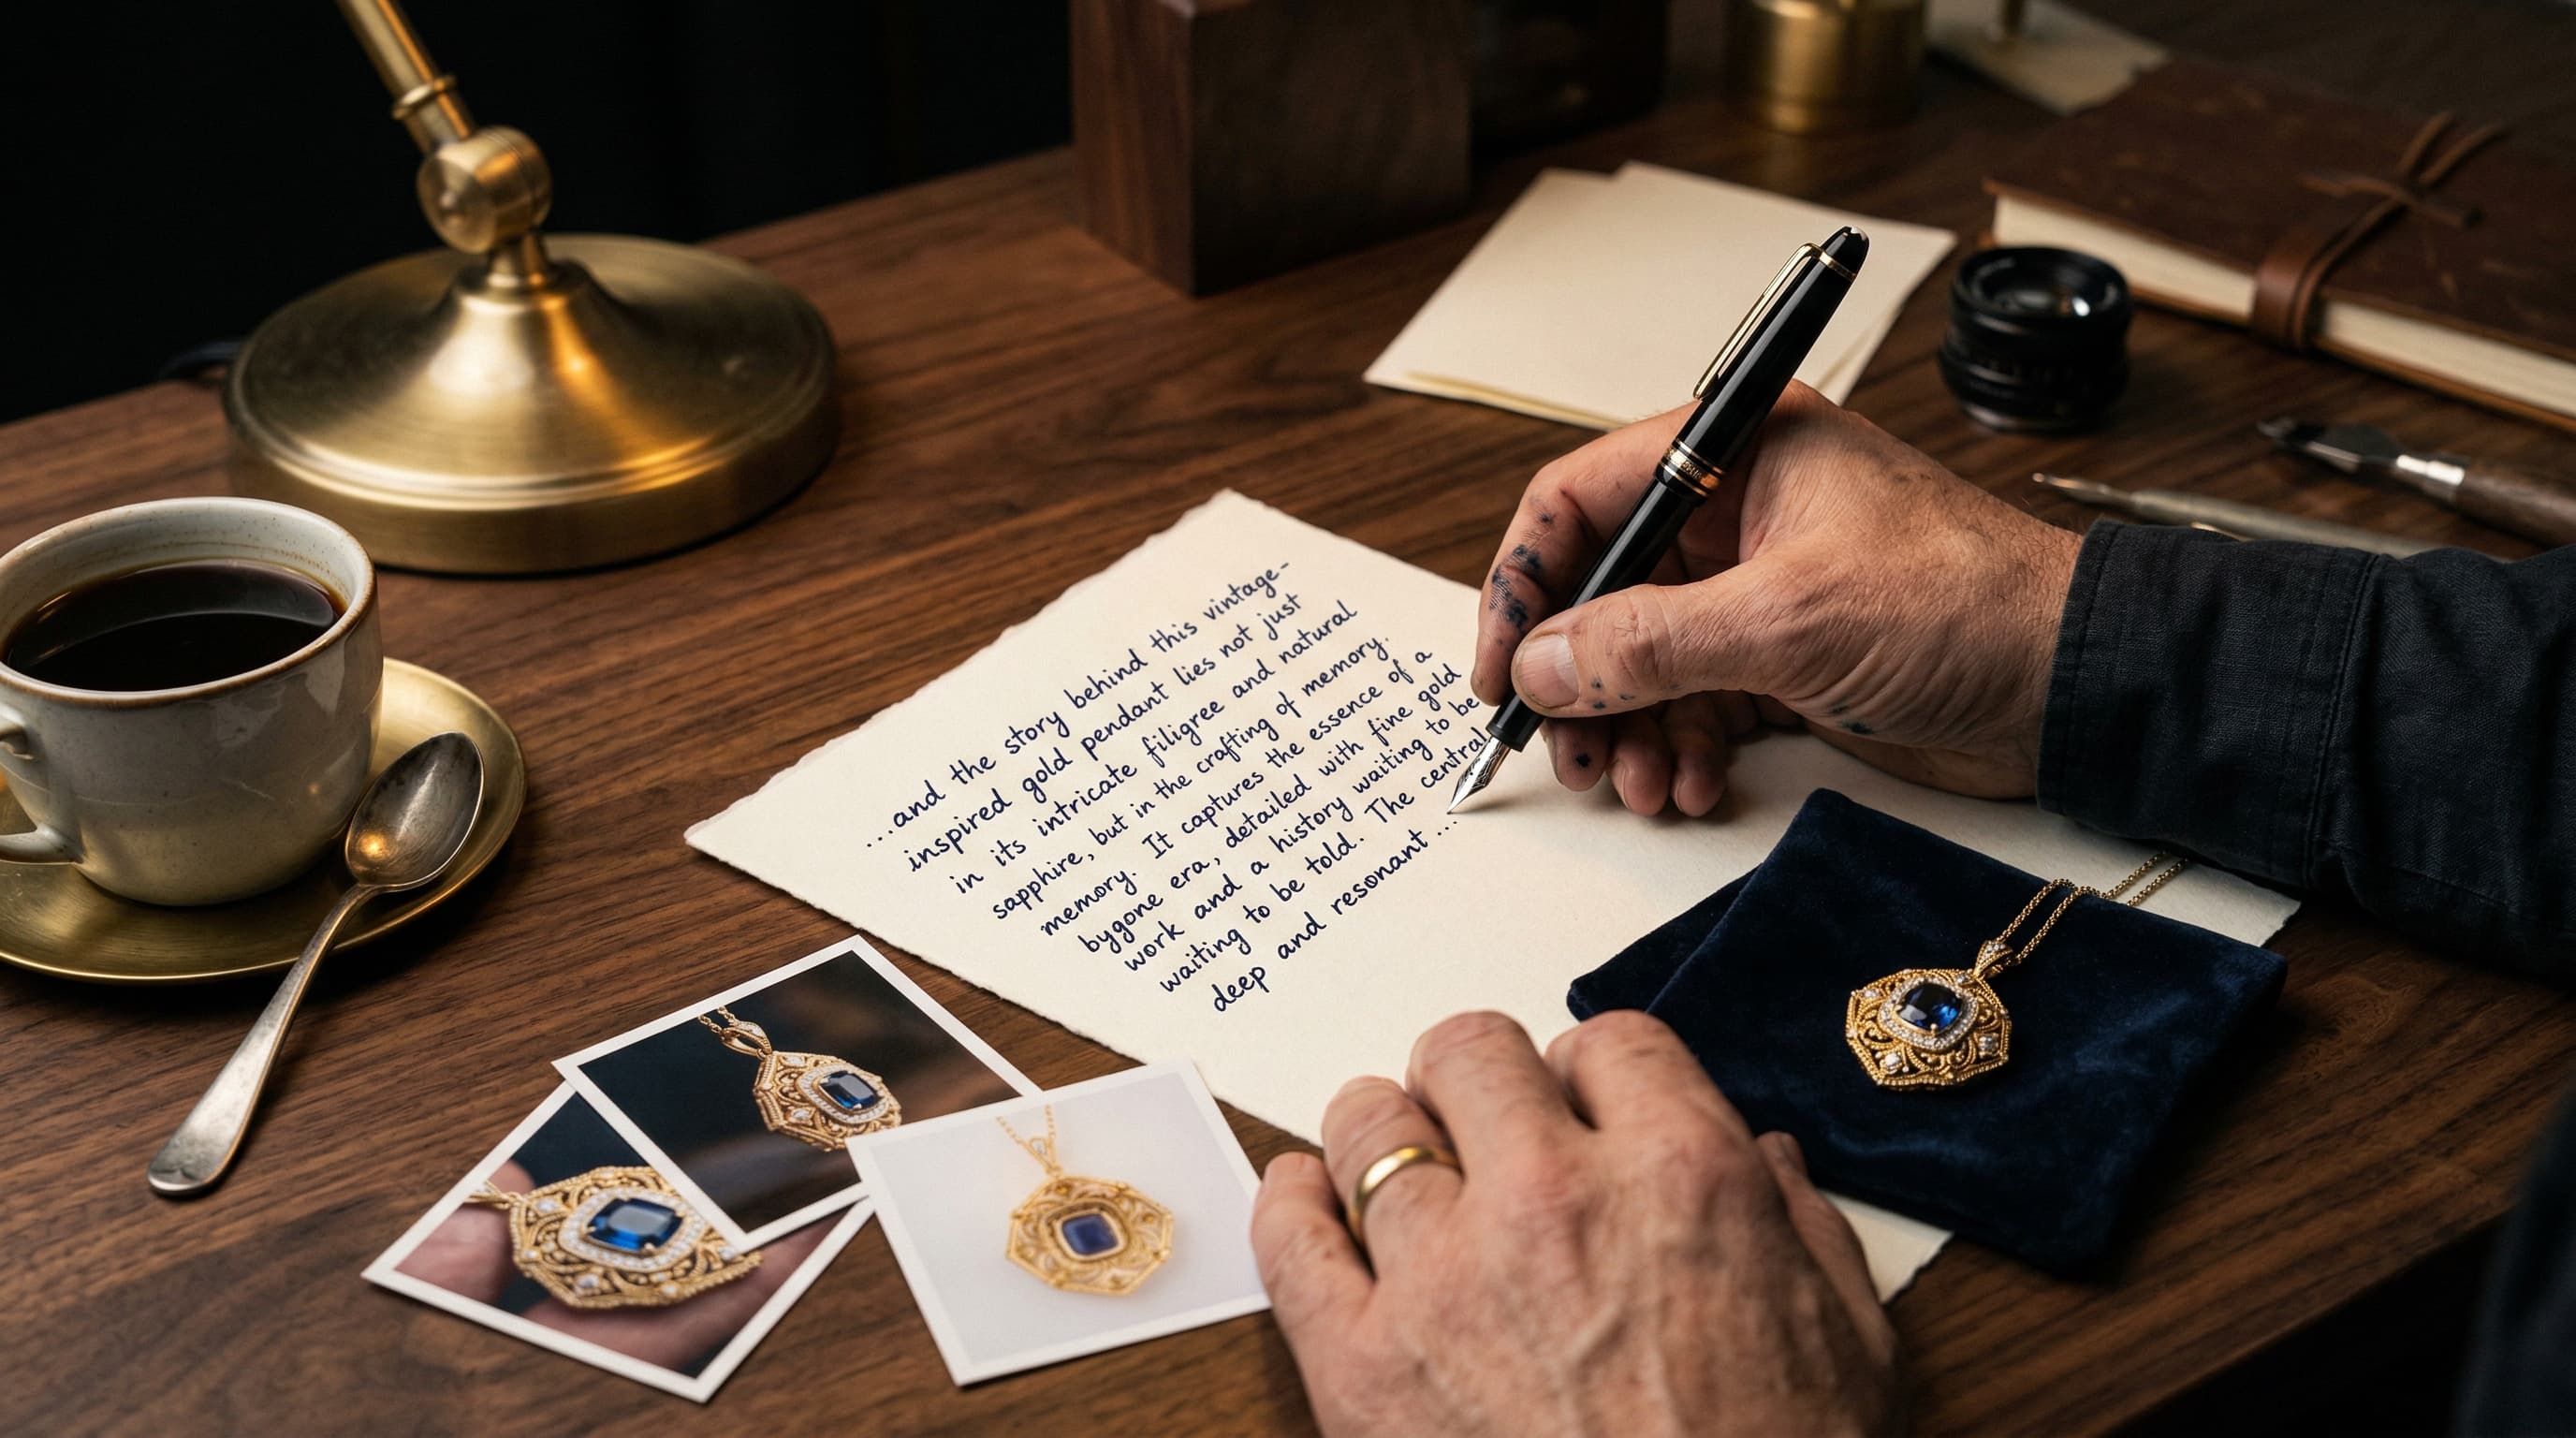 ...and the story behind this vintage-
inspired gold pendant lies not just
in its intricate filigree and natural
sapphire, but in the crafting of memory.
memory. It captures the essence of a
bygone era, detailed with fine gold
work and a history waiting to be
waiting to be told. The central
deep and resonant ....